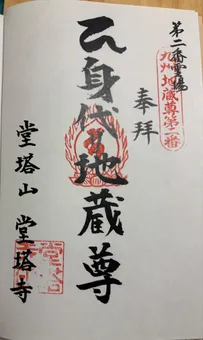 第二番霊場
九州地蔵尊第二番
奉拝
身代り地蔵尊
堂塔山 堂塔寺